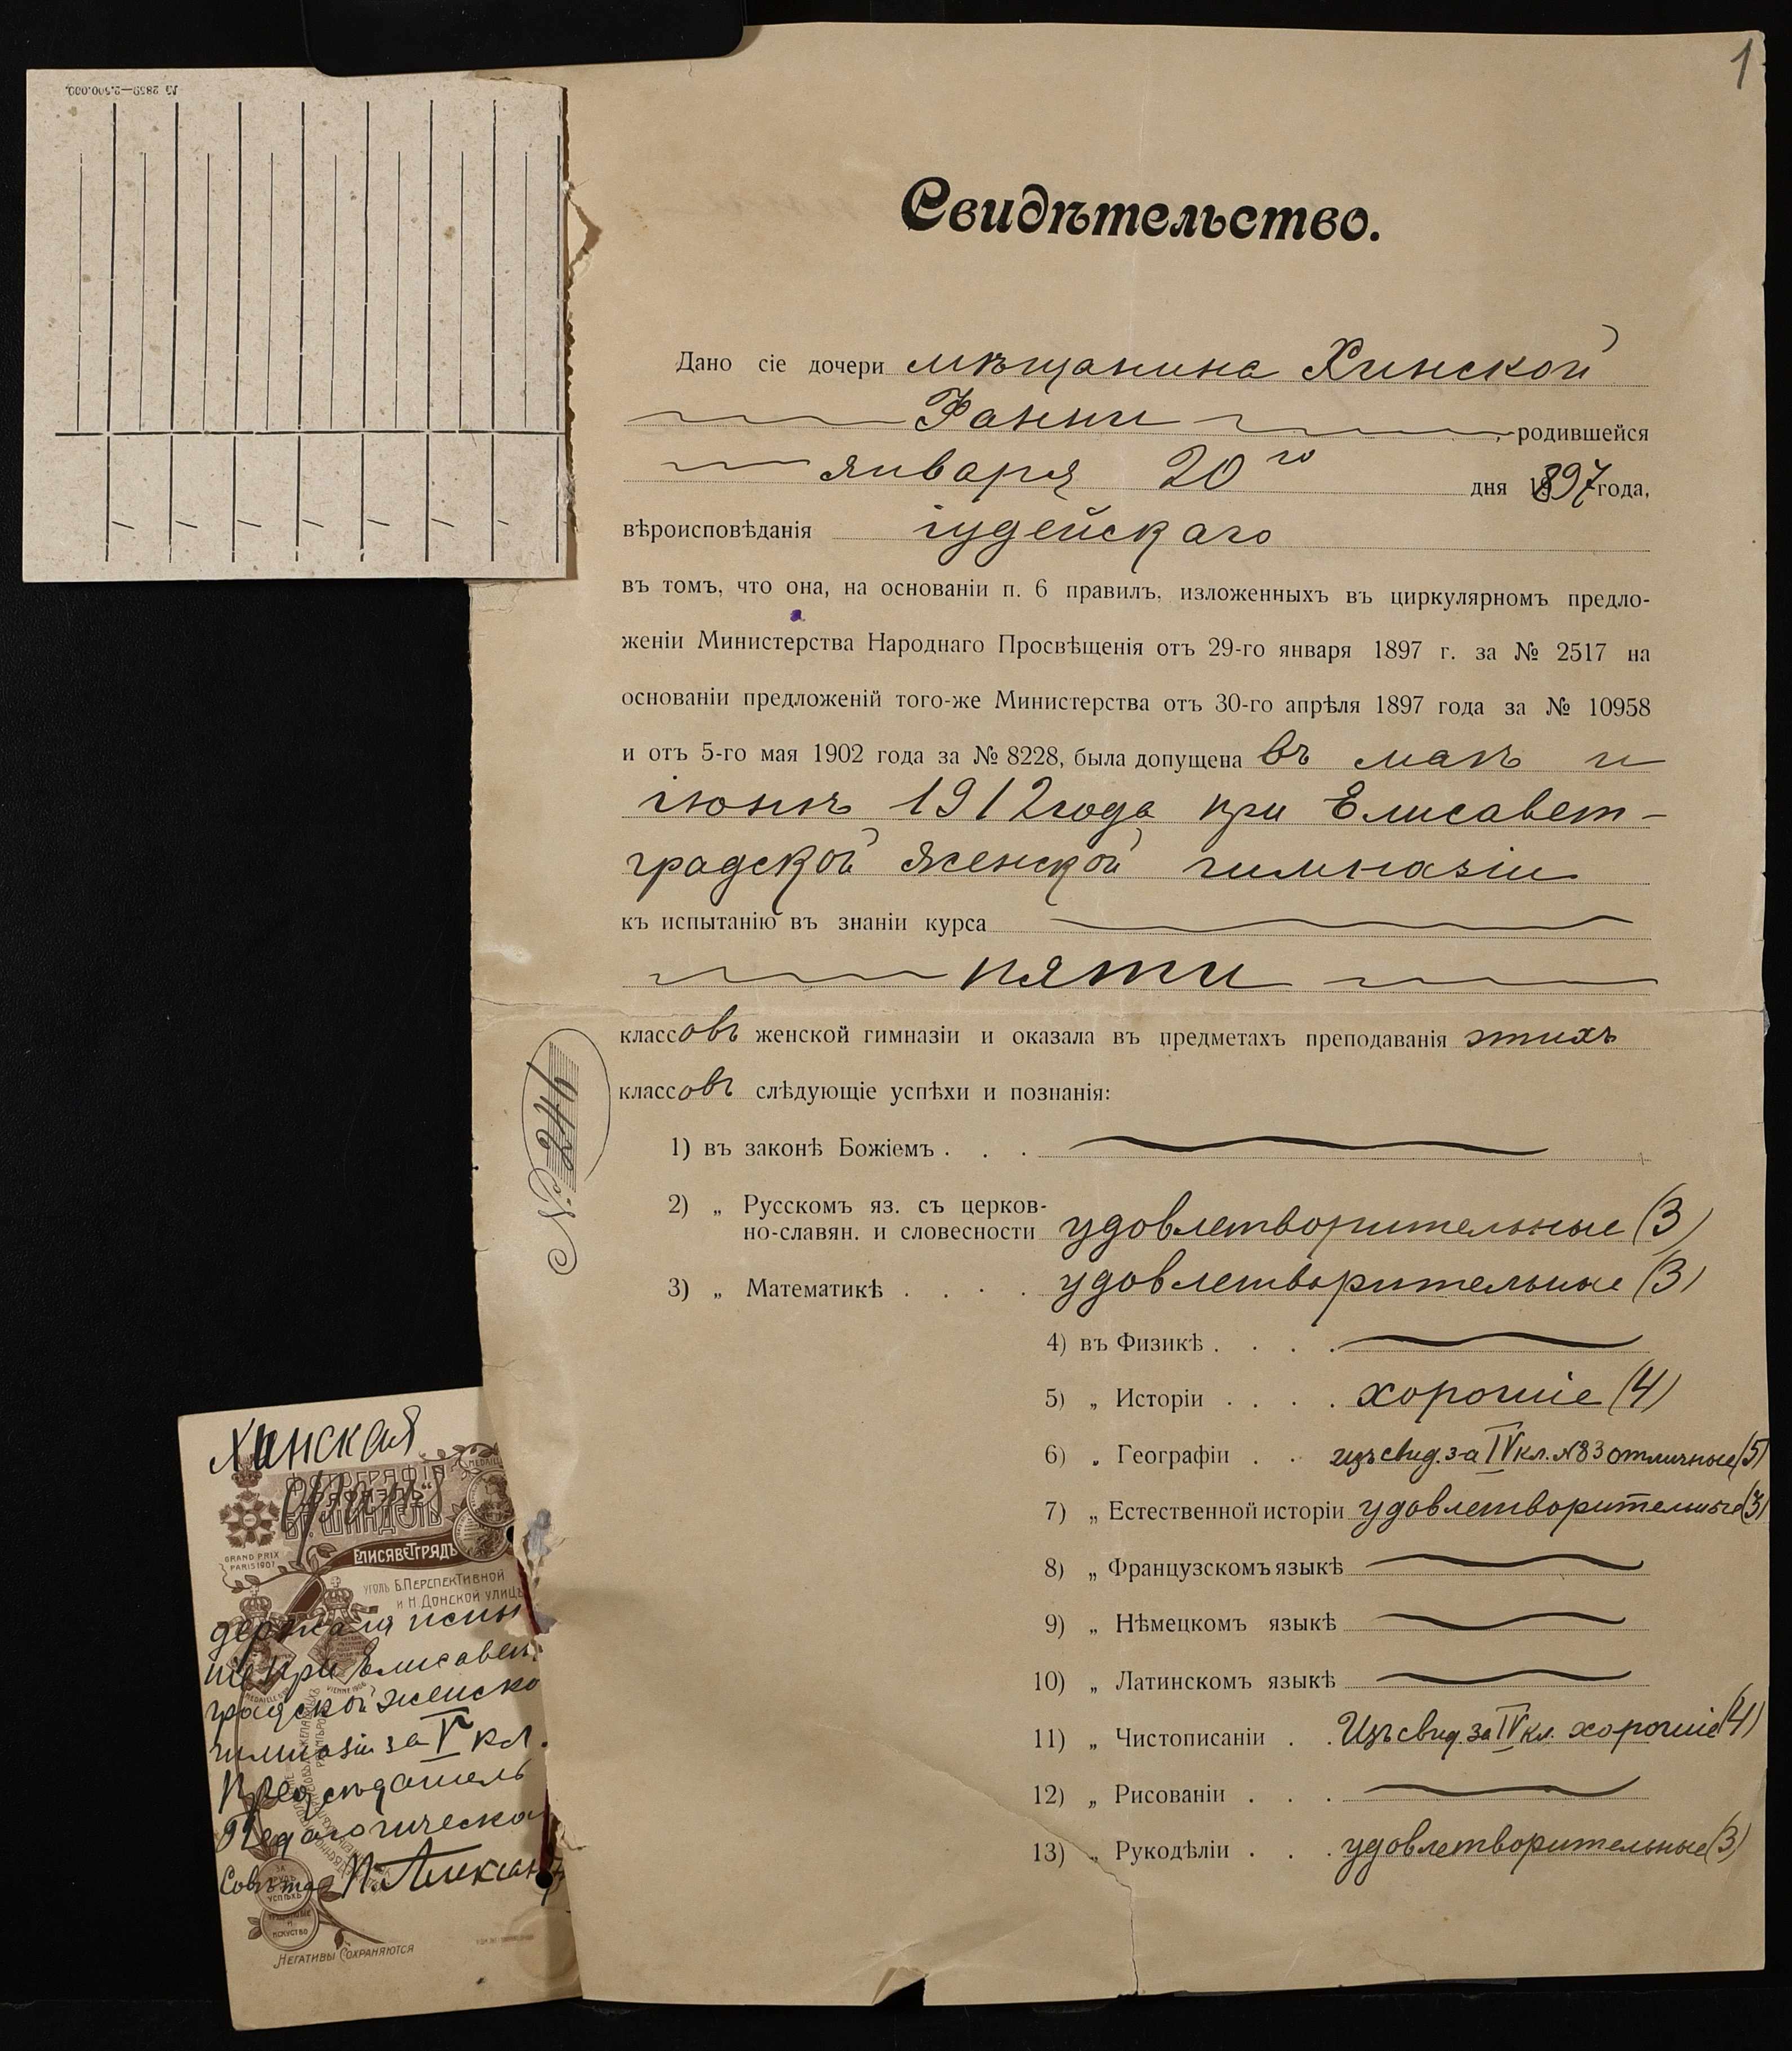 1
№ 2859—2.500.000.
Свидѣтельство.
Дано сіе дочери мѣщанина Хинской
Фанни, родившейся
января 20го дня 1897 года,
вѣроисповѣданія іудейскаго
въ томъ, что она, на основаніи п. 6 правилъ, изложенныхъ въ циркулярномъ предло-
женіи Министерства Народнаго Просвѣщенія отъ 29-го января 1897 г. за № 2517 на
основаніи предложеній того-же Министерства отъ 30-го апрѣля 1897 года за № 10958
и отъ 5-го мая 1902 года за № 8228, была допущена въ маѣ и
іюнѣ 1912 года при Елисавет-
градской женской гимназіи
къ испытанію въ знаніи курса
пяти
классовъ женской гимназіи и оказала въ предметахъ преподаванія этихъ
классовъ слѣдующіе успѣхи и познанія:
№ 246
1) въ законѣ Божіемъ . . .
2) „ Русскомъ яз. съ церков-
но-славян. и словесности удовлетворительные (3)
3) „ Математикѣ . . . . удовлетворительные (3)
4) въ Физикѣ . . . .
5) „ Исторіи . . . . хорошіе (4)
6) „ Географіи . . изъ свид. за IV кл. № 83 отличные (5)
7) „ Естественной исторіи удовлетворительные (3)
8) „ Французскомъ языкѣ
9) „ Нѣмецкомъ языкѣ
10) „ Латинскомъ языкѣ
11) „ Чистописаніи . . Изъ свид. за IV кл. хорошіе (4)
12) „ Рисованіи . . .
13) „ Рукодѣліи . . . удовлетворительные (3)
Хинская
ФОТОГРАФІЯ
„РАФАЭЛЬ“
БР. ШИНДЕЛЬ
ЕЛИСАВЕТГРАДЪ
GRAND PRIX
PARIS 1907
УГОЛЪ Б. ПЕРСПЕКТИВНОЙ
И Н. ДОНСКОЙ УЛИЦЪ
держала испы
ніе при Елисавет
градской женско
гимназіи за V кл.
Предсѣдатель
Педагогическа
Совѣта
ЗА
УСПѢХЪ
ИСКУСТВО
НЕГАТИВЫ СОХРАНЯЮТСЯ